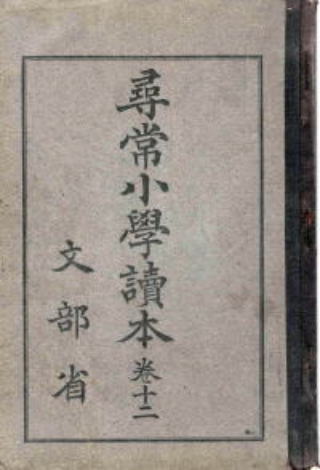 尋常小學讀本卷十二
文部省